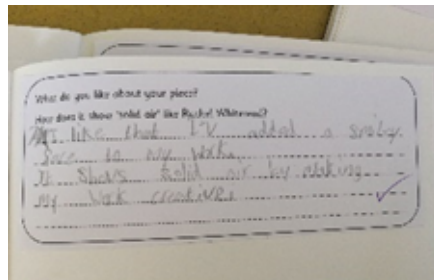 What do you like about your piece?
How does it show 'solid air' like Rachel Whiteread?
I like that I'v added a smiley
face to my work.
It shows solid air by making
my work creative.